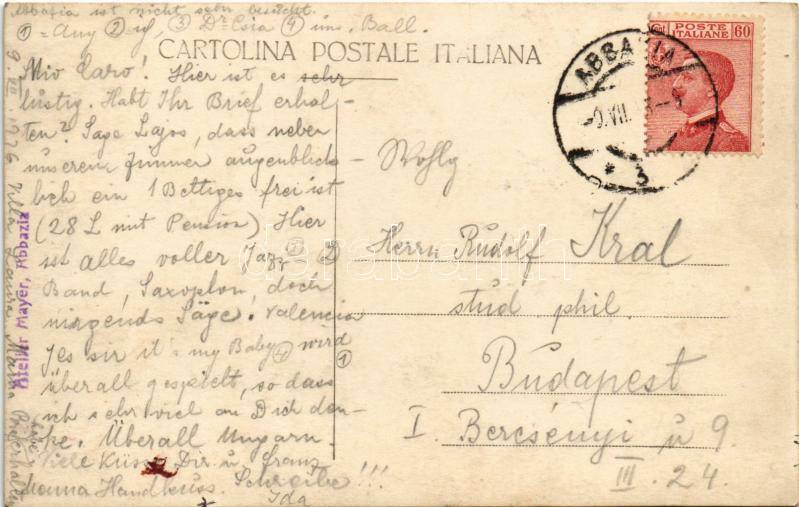 Abbazia ist nicht sehr besucht.
① = Any ② ich, ③ Dr Esia ④ uns. Ball.
CARTOLINA POSTALE ITALIANA
POSTE ITALIANE 60
ABBAZIA
3
Mio Caro! Hier ist es sehr
lustig. Habt Ihr Brief erhal-
ten? Sage Lajos, dass neben
unserem Zimmer augenblick-
lich ein 1 Bettiges frei ist
(28 L mit Pension) Hier
ist alles voller Jazz
Band, Saxophon, doch
nirgends Säge. Valencia
Yes sir it's my Baby wird
überall gespielt, so dass
ich sehr viel an Dich den-
ke. Überall Ungarn.
Viele Küsse Dir u. Franz
Handkuss. Schreibe!!!
Ida
9 VII. 1926 Villa Laura
Atelier Mayer, Abbazia
Wohlg
Herrn Rudolf Kral
stud phil.
Budapest
I. Bercsényi u 9.
III. 24.
darabanth